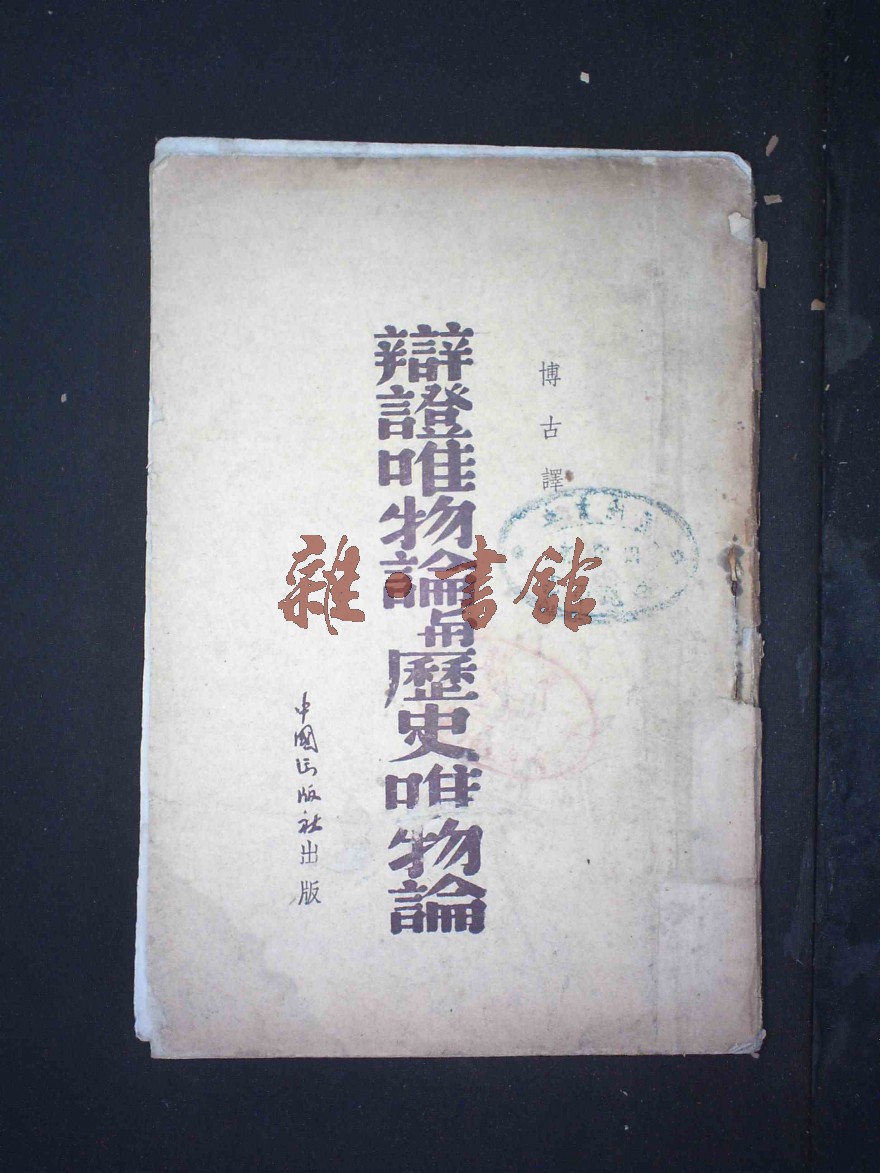 博古譯
辯證唯物論與歷史唯物論
中國出版社出版
雜·書館